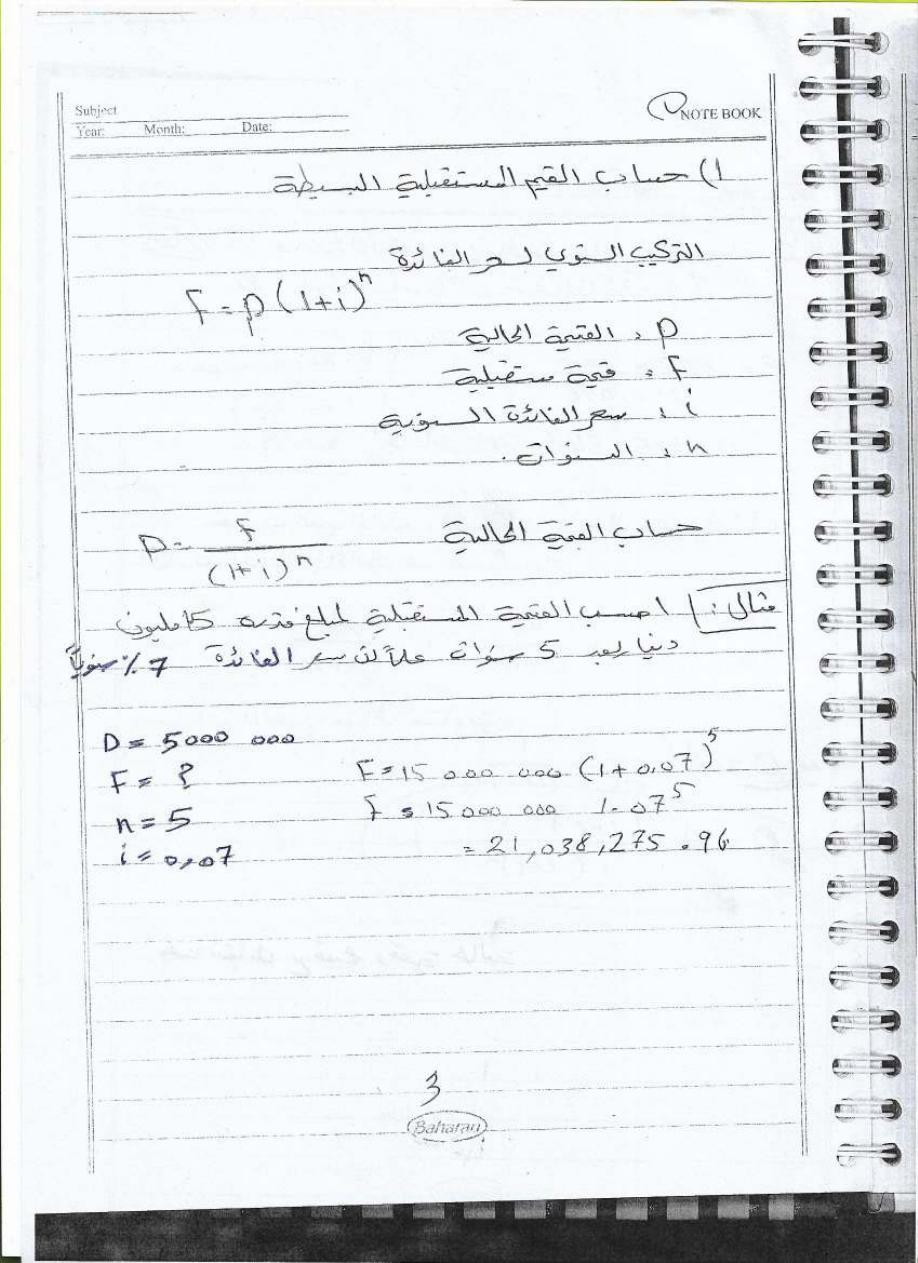 Subject
Year: Month: Date:
NOTE BOOK
1) حساب القيم المستقبلية البسيطة
التركيب السنوي لسعر الفائدة
F = p (1+i)^n
p : القيمة الحالية
F : قيمة مستقبلية
i : سعر الفائدة السنوية
n : السنوات .
حساب القيمة الحالية P = F / (1+i)^n
مثال : احسب القيمة المستقبلية لمبلغ قدره 15 مليون
دينار بعد 5 سنوات علماً ان سعر الفائدة 7 % سنوياً
P = 5000 000
F = ? F = 15 000 000 (1 + 0,07)^5
n = 5 F = 15 000 000 1.07^5
i = 0,07 = 21,038,275 .96
3
Baharan